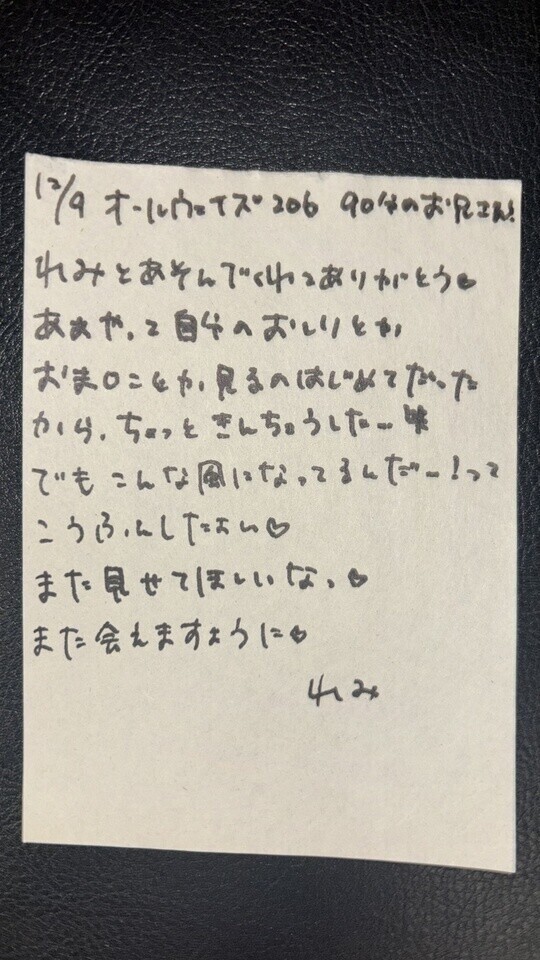 12/9 オールウェイズ206 90分のお兄さん!
れみとあそんでくれてありがとう♥
あぁやって自分のおしりとか
おま〇ことか見るのはじめてだった
から、ちょっときんちょうしたー
でもこんな風になってるんだー!って
こうふんしたよぉ♡
また見せてほしいなっ♥
また会えますように♥
れみ